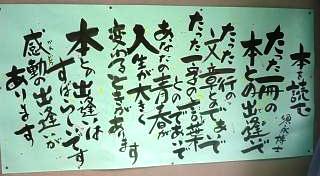 本を読む
須永博士
たった一冊の
本との出逢い
たった一行の
文章とのであい
たった一言の言葉
とのであいで
あなたの青春が
人生が大きく
変わるときがあります
本との出逢いは
すばらしいです
感動の出逢いが
あります